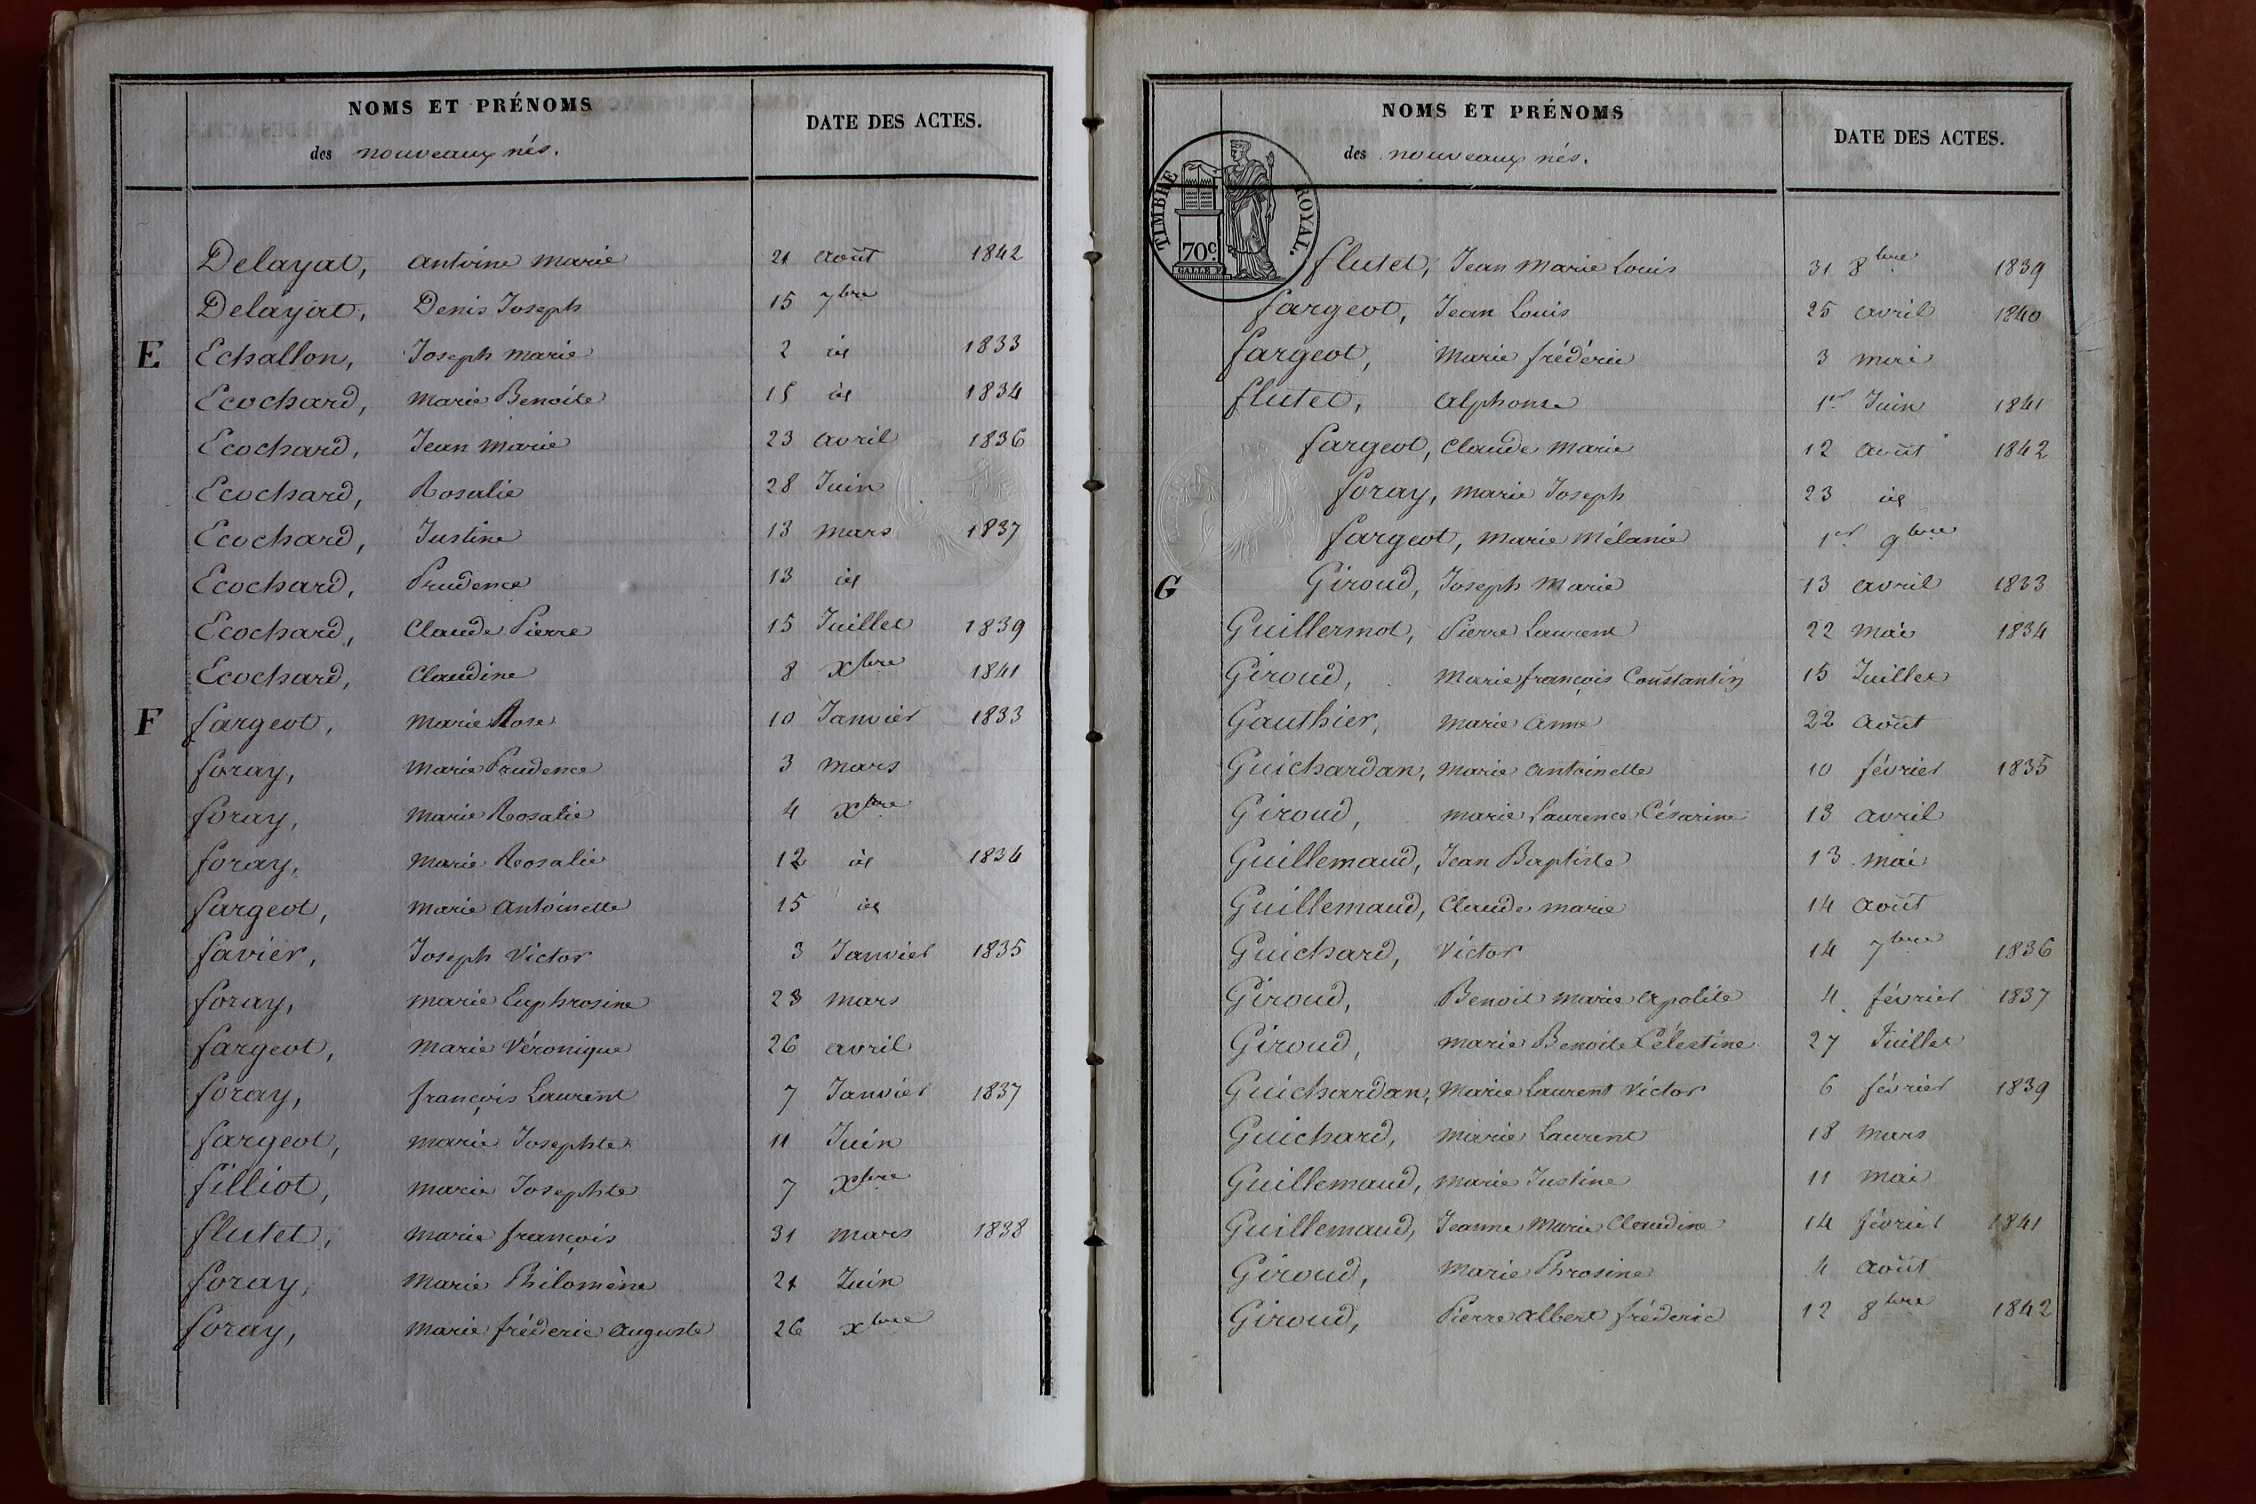 NOMS ET PRÉNOMS
des nouveaux nés.
DATE DES ACTES.
Delayat, antoine marie 21 août 1842
Delayat, Denis Joseph 15 7bre
E Echallon, Joseph marie 2 id 1833
Ecochard, marie Benoite 15 id 1834
Ecochard, Jean marie 23 avril 1836
Ecochard, Rosalie 28 Juin
Ecochard, Justine 13 mars 1837
Ecochard, Prudence 13 id
Ecochard, Claude Pierre 15 Juillet 1839
Ecochard, Claudine 8 xbre 1841
F fargeot, marie Rose 10 Janvier 1833
foray, marie Prudence 3 mars
foray, marie Rosalie 4 xbre
foray, marie Rosalie 12 id 1834
fargeot, marie antoinette 15 id
favier, Joseph Victor 3 Janvier 1835
foray, marie Euphrosine 23 mars
fargeot, marie Véronique 26 avril
foray, françois Laurent 7 Janvier 1837
fargeot, marie Josephte 11 Juin
filliot, marie Josephte 7 xbre
flutet, marie françois 31 mars 1838
foray, marie Philomène 21 Juin
foray, marie fréderic auguste 26 xbre
NOMS ET PRÉNOMS
des nouveaux nés.
DATE DES ACTES.
TIMBRE ROYAL.
70c.
flutet, Jean marie Louis 31 8bre 1839
fargeot, Jean Louis 25 avril 1840
fargeot, marie frédéric 3 mai
flutet, alphonse 1er Juin 1841
fargeot, Claude marie 12 août 1842
foray, marie Joseph 23 id
fargeot, marie mélanie 1er 9bre
G Giroud, Joseph marie 13 avril 1833
Guillermot, Pierre Laurent 22 mai 1834
Giroud, marie françois Constantin 15 Juillet
Gauthier, marie anne 22 août
Guichardan, marie antoinette 10 février 1835
Giroud, marie Laurence Césarine 13 avril
Guillemaud, Jean Baptiste 13 mai
Guillemaud, Claude marie 14 août
Guichard, Victor 14 7bre 1836
Giroud, Benoit marie apolite 4 février 1837
Giroud, marie Benoite Célestine 27 Juillet
Guichardan, marie Laurent Victor 6 février 1839
Guichard, marie Laurent 18 mars
Guillemaud, marie Justine 11 mai
Guillemaud, Jeanne marie Claudine 14 février 1841
Giroud, marie Phrosine 4 août
Giroud, Pierre albert fréderic 12 8bre 1842